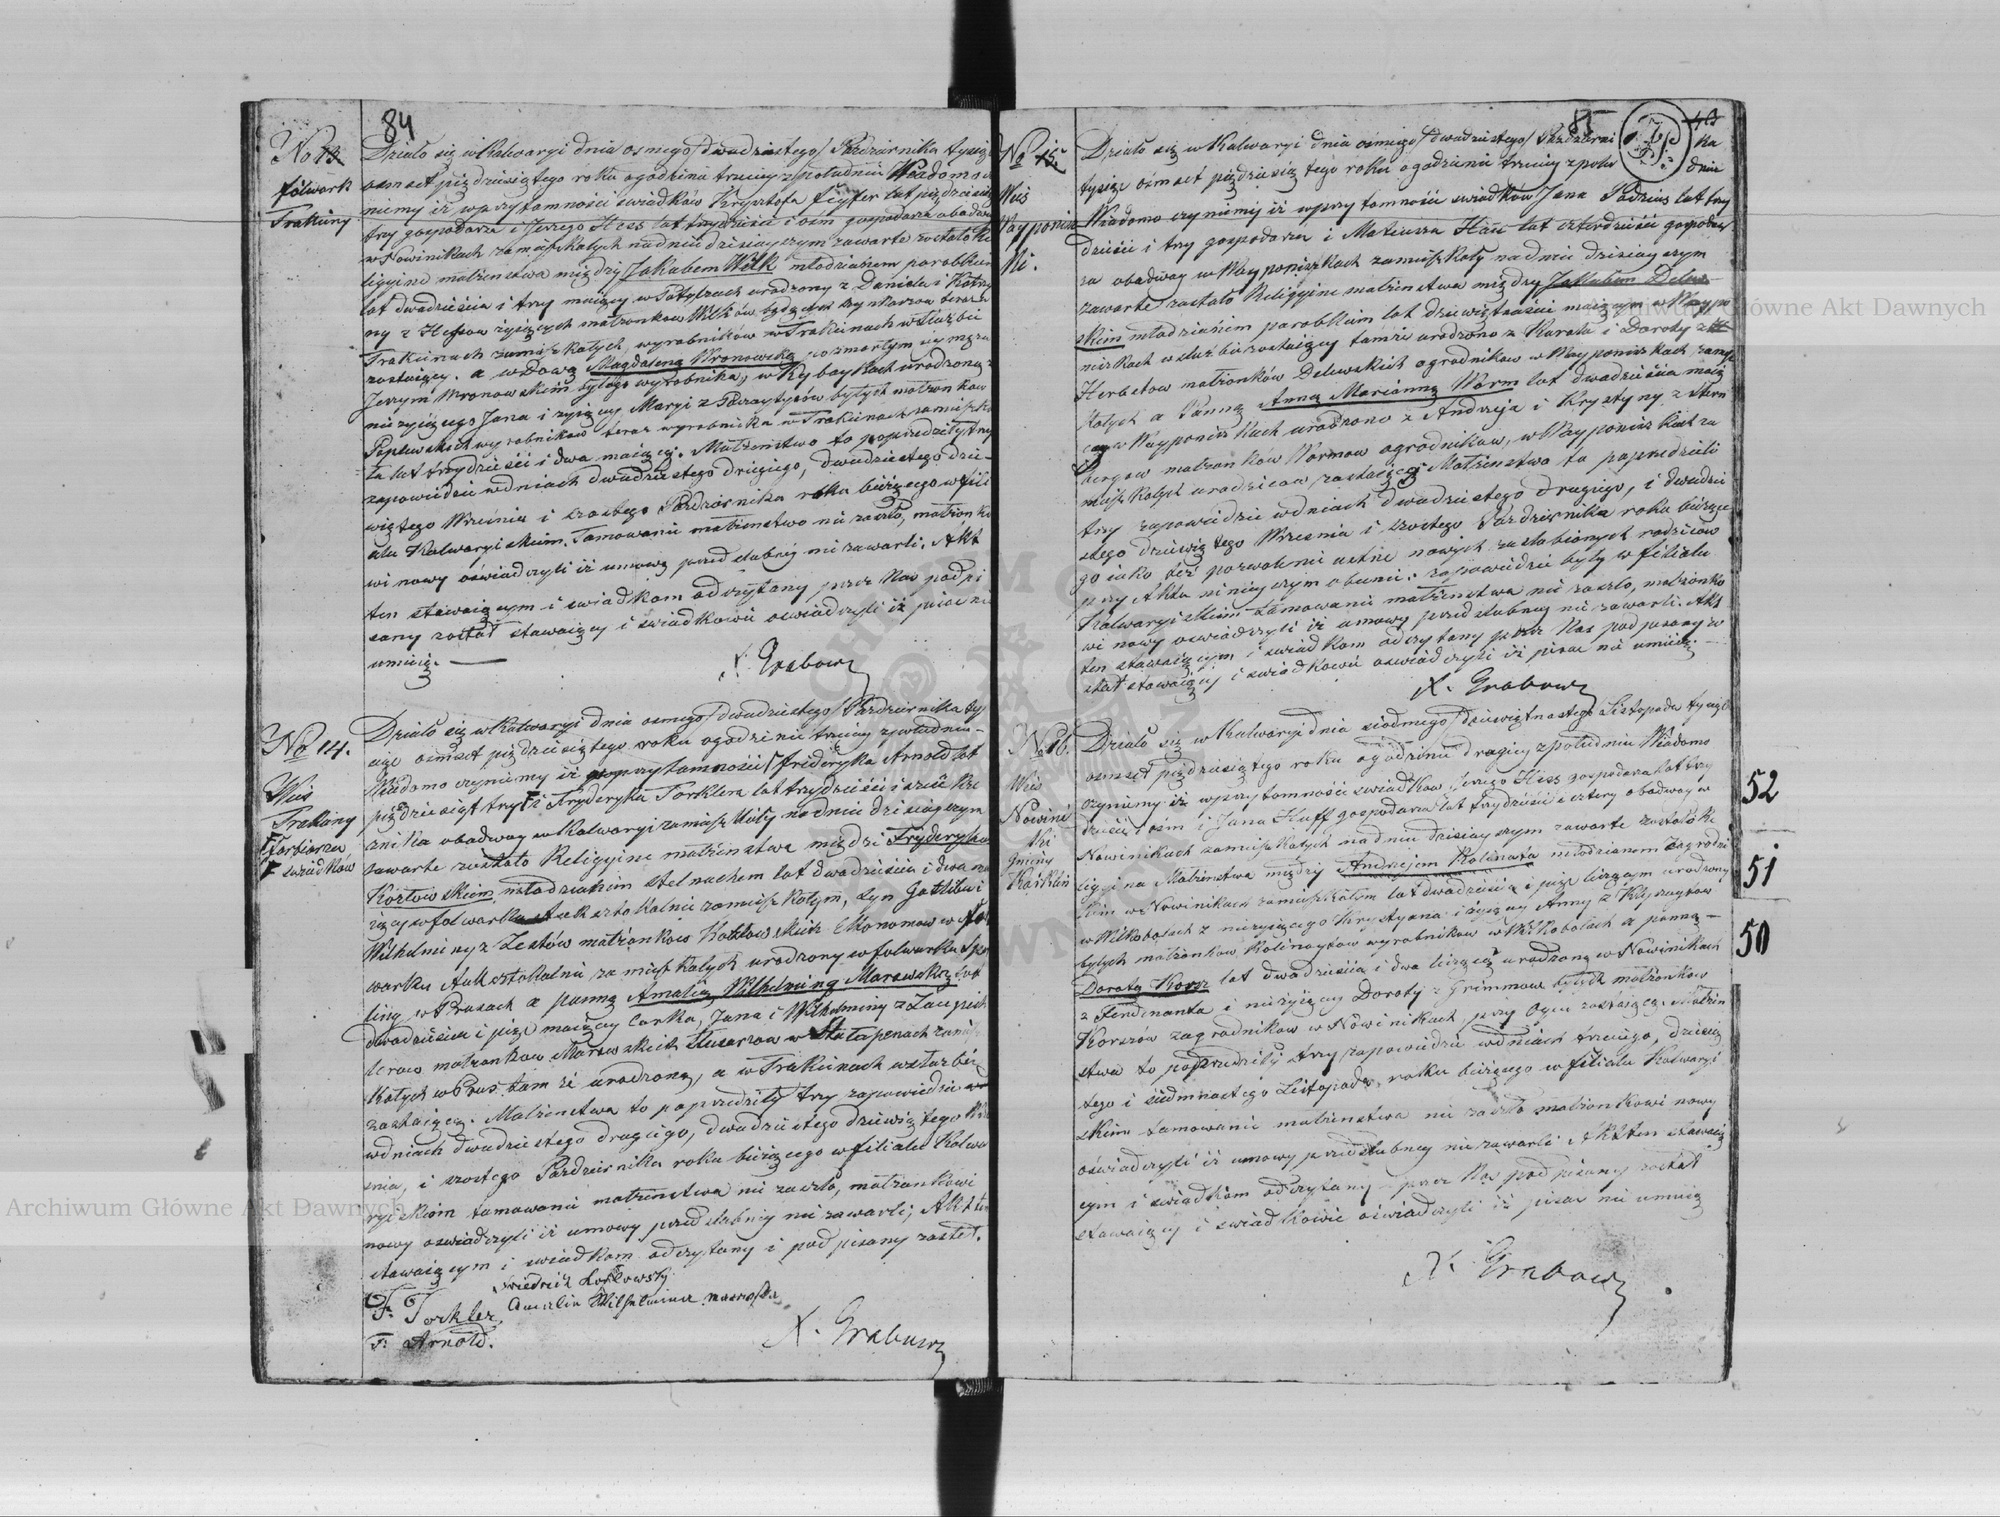 84
No 13.
folwark
Trakiny
Działo się w Kalwaryi dnia osmego /dwudziestego/ Października tysiąc
osmset pięćdziesiątego roku o godzinie trzeciey z południa Wiadomo
niemy iż w przytomności świadków Krysztofa Feyfer lat pięćdziesiąt
trzy gospodarza i Jerzego Hess lat trzydzieści i ośm gospodarza obadwa
w Nowinikach zamieszkałych na dniu dzisieyszym zawarte zostało Re
ligijne małżeństwo między Jakubem Wilk młodzianem parobkiem
lat dwadzieścia i trzy maiący w urodzony z Daniela i Katarzy
ny z żyiących małżonków Wilków teraz w
Trakinach zamieszkałych wyrobników w Trakinach w służbie
zostaiący. a wdową Magdaleną Wronowską po zmarłym iey mężu
Jerzym Wronowskim byłego wyrobnika, w Rybaykach urodzoną z
nieżyiącego Jana i żyiącey Maryi z byłych małżonków
Poplewskich wyrobników teraz wyrobnika w Trakinach zamieszka
ła lat trzydzieści i dwa maiącą. Małżeństwo to poprzedziły trzy
zapowiedzie w dniach dwudziestego drugiego, dwudziestego dzie-
wiątego Wrześnie i szostego Października roku bieżącego w fili
ale Kalwaryiskim. Tamowanie małżeństwa nie zaszło, małżonko
wie nowy oświadczyli iż umowy przedślubney nie zawarli. Akt
ten stawaiącym i świadkom odczytany przez Nas podpi
sany został stawaiący i świadkowie oświadczyli iż pisać nie
umieią.
X. Grabow
No 14.
Wieś
Trakiny
F farbiarza
F świadków
Działo się w Kalwaryi dnia osmego /dwudziestego/ Październiks ty
siąc ośmset pięćdziesiątego roku o godzinie trzeciey z południa-
Wiadomo czyniemy iż w przytomności F Frideryka Arnold lat
pięćdziesiąt trzy F i Fryderyka Torklera lat trzydzieści i sześć
znika obadway w Kalwaryi zamieszkały na dniu dzisieyszym
zawarte zostało Religyine małżeństwa między Fryderykiem
Kozłowskim młodzianem stelmachem lat dwadzieścia i dwa ma
iący w folwarku Aukszto Kalnie zamieszkałym, syn Gotliba i
Wilhelminy z Lestów małżonków Kozłowskich Ekonomów w fol
warku Auksztokalnie zamieszkałych urodzony w folwarku
w Prusach a panną Amalią Wilhelminą Marewską lat
dwadzieścia i pięć maiący Corka, Jana i Wilhelminy z
lerow małżonków Marewskich Slusarzow w Stalupenach zamiesz
kałych w Prus. tamże urodzoną, a w Trakinach w służbie
zostaiącą. Małżeństwa to poprzedziły trzy zapowiedzie
w dniach dwudziestego drugiego, dwudziestego dziewiątego Wrze
śnia, i szostego Października roku bieżącego w filiale Kalwa
ryiskim tamowanie małżeństwa nie zaszło, małżonkowie
nowy oswiadczyli iż umowy przedślubney nie zawarli; Akt ten
stawaiącym i świadkom odczytany i podpisany został.
Friedrich Kozlowsky
F. Torkler, Amalia Wilhelmina Marewska
F: Arnold.
X. Grabow
85
No 15
Wieś
Wayponisz
ki.
Działo się w Kalwaryi dnia osmego /dwudziestego/ Październi ka
tysiąc osmset pięćdziesiątego roku o godzinie trzeciey z połu dnia
Wiadomo czyniemy iż w przytomności świadków Jana lat trzy
dzieści i trzy gospodarza i Mateusza lat czterdzieści gospoda
rza obadway w Wayponiszkach zamieszkały na dniu dzisieyszym
zawarte zostało Religyine małżeństwa między Jakubem Delew
skim młodzianem parobkiem lat dziewiętnaście maiącym w Waypo
niszkach w służbie zostaiący tamże urodzono z Karola i Doroty z
Herbetow małżonków Delewskich ogrodników w Wayponiszkach zamiesz
kałych a Panną Anną Marianną Worm lat dwadzieścia maią
cą w Wayponiszkach urodzono z Andrzeja i Krystyny z Stern
bergow małżonków Wormow ogrodników, w Wayponiszkach za
mieszkałych urodzicow zostaiącą. Małżeństwa to poprzedzili
trzy zapowiedzie w dniach dwudziestego drugiego, i dwudzie
stego dziewiątego Wrzesnia i szostego Październiks roku bieżące
go iako też pozwolenie ustne nowych zaślubionych rodziców
przy Akta niniejszym obecni. zapowiedzie były w filiale
Kalwaryiskim tamowanie małżeństwa nie zaszło, małżonko
wie nowy oswiadczyli iż umowy przedślubney nie zawarli. Akt
ten stawaiącym i świadkom odczytany przez Nas podpisany zo
stał stawaiący i świadkowie oswiadczyli iż pisać nie umieią.
X. Grabow
No 16.
Wieś
Nowini
ki
Gminy
Karklin
Działo się w Kalwaryi dnia siodmego /dziewiętnastego/ Listopada tysiąc
osmset pięćdziesiątego roku o godzinie drugiey z południa Wiadomo
czyniemy iż w przytomności świadkow Jerzego Hess gospodarza lat trzy
dzieści i ośm i Jana Huff gospodarza lat trzydzieści i cztery obadway w
Nowinikach zamieszkałych na dniu dzisieyszym zawarte zostało Re
ligyina Małżenstwa między Andrzejem Kolinata młodzianem zagrodni
kiem w Nowinikach zamieszkałym lat dwadzieścia i pięć liczącym urodzony
w Wilkobolach z nieżyiącego Krystyana i żyiącey Anny z
byłych małżonków Kolinaytow wyrobników w Wilkobolach a panną —
Dorotą Korsz lat dwadzieścia i dwa liczącą urodzoną w Nowinikach
z Ferdinanta i nieżyiącey Doroty z Grimmow byłych małżonkow
Korszow zagrodników w Nowinikach, przy Oycu zostaiącą. Małżeń
stwa to poprzedziły trzy zapowiedzie w dniach trzeciego, dziesią
tego i siedmnastego Listopada, roku bieżącego w filiale Kalwaryi
skim tamowanie małżenstwa nie zaszło małżonkowi nowy
oświadczyli iż umowy przedślubney nie zawarli Akt ten stawaią
cym i świadkom odczytany przez Nas podpisany został
stawaiący i świadkowie oświadczyli iż pisac nie umieią
X. Grabow
52
51
50
Archiwum Główne Akt Dawnych
Archiwum Główne Akt Dawnych